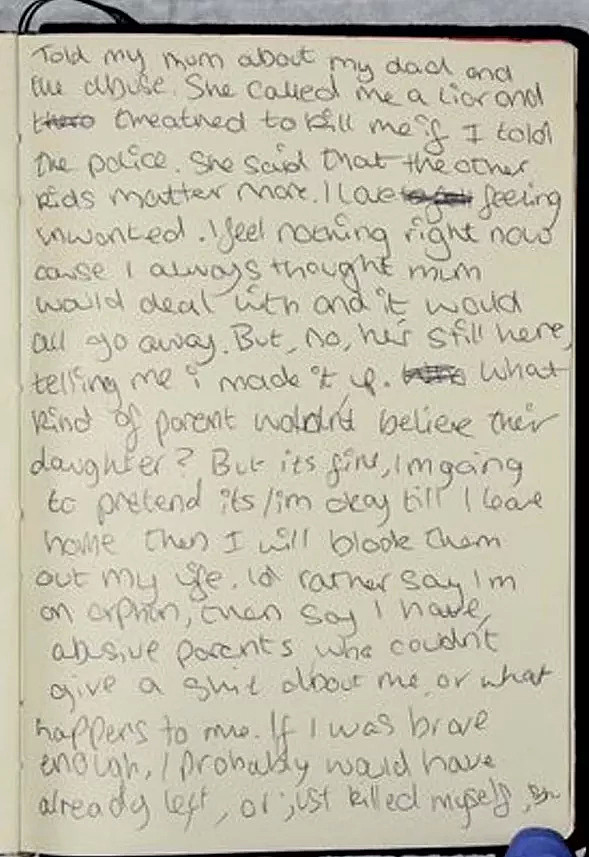 Told my mum about my dad and
the abuse. She called me a liar and
threatned to kill me if I told
the police. She said that the other
kids matter more. I love feeling
unwanted. I feel nothing right now
cause I always thought mum
would deal with and it would
all go away. But, no, he's still here,
telling me i made it up. What
kind of parent woldn't believe their
daughter? But its fine, Im going
to pretend its/im okay till I leave
home then I will block them
out my life. Id rather say Im
an orphan, then say I have
abusive parents who couldn't
give a shit about me or what
happens to me. If I was brave
enough, I probably would have
already left, or just killed myself,